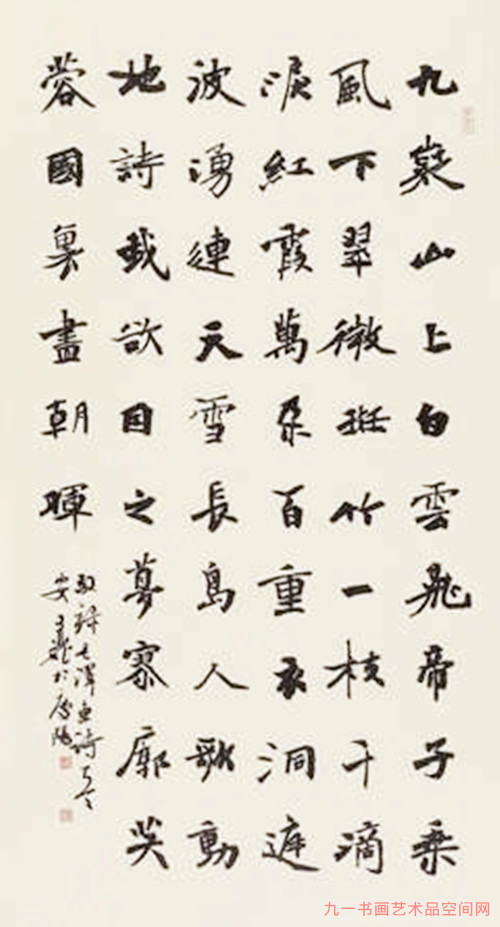 九嶷山上白雲飛帝子乘
風下翠微斑竹一枝千滴
淚紅霞萬朵百重衣洞庭
波湧連天雪長島人歌動
地詩我欲因之夢寥廓芙
蓉國裏盡朝暉
敬録毛澤東詩
九一书画艺术品空间网